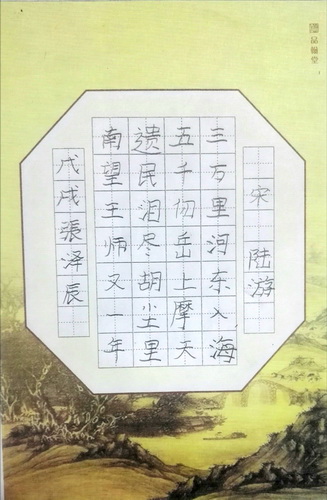 品翰堂
宋 陆游
三万里河东入海
五千仞岳上摩天
遗民泪尽胡尘里
南望王师又一年
戊戌張泽辰